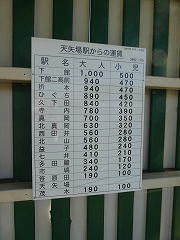 天矢場駅からの運賃
駅名 大人 小児
下館 1,000 500
下館二高前 940 470
折本 940 470
ひぐち 890 450
久下田 840 420
寺内 780 390
真岡 700 350
北真岡 630 320
西田井 560 280
北山 560 280
益子 480 240
七井 410 210
多田羅 340 170
市塙 240 120
笹原田 190 100
天矢場
茂木 190 100